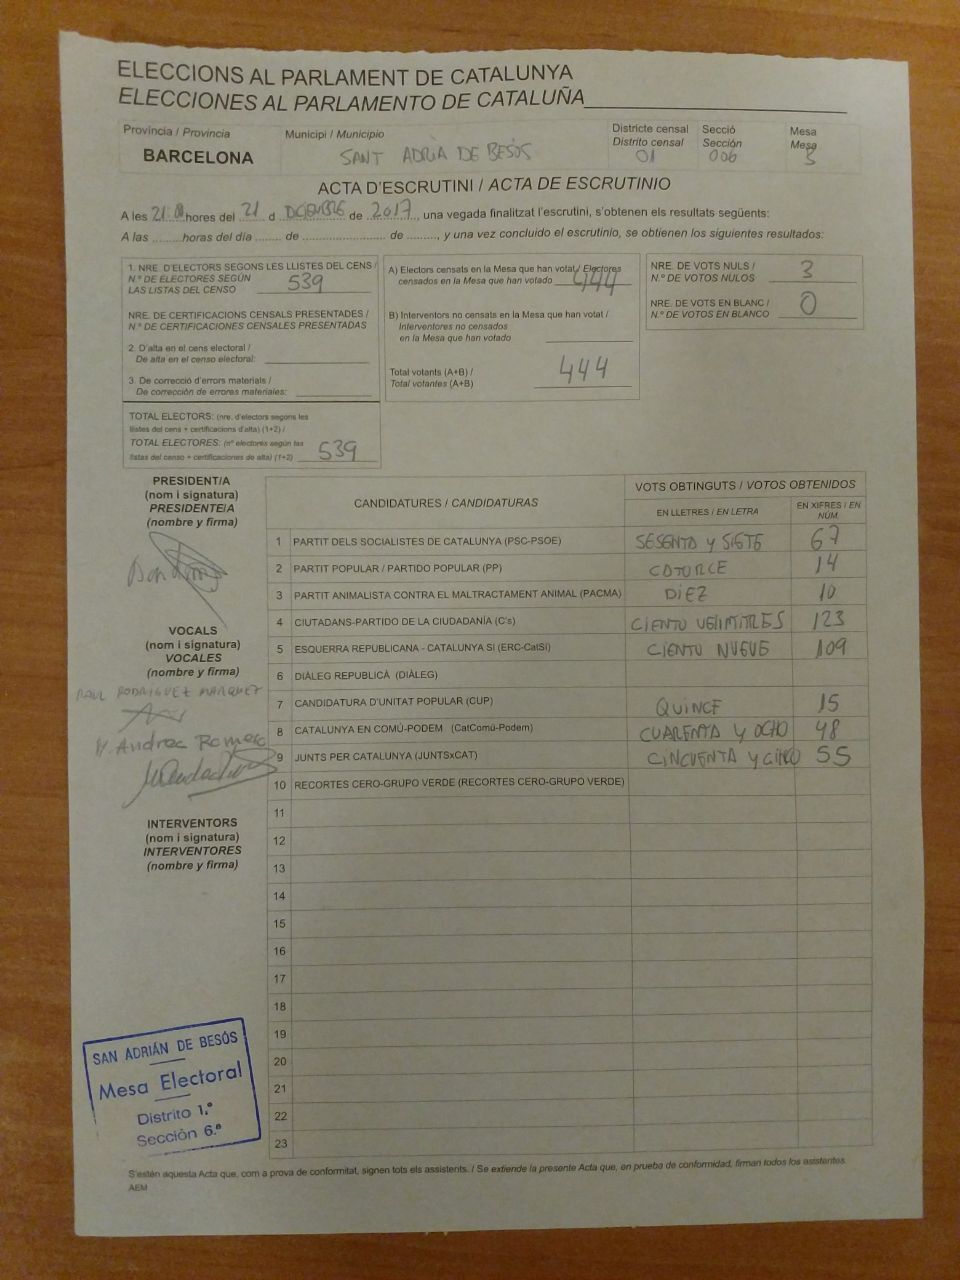 ELECCIONS AL PARLAMENT DE CATALUNYA
ELECCIONES AL PARLAMENTO DE CATALUÑA
Província / Provincia
BARCELONA
Municipi / Municipio
SANT ADRIÀ DE BESÒS
Districte censal
Distrito censal
01
Secció
Sección
006
Mesa
Mesa
ACTA D'ESCRUTINI / ACTA DE ESCRUTINIO
A les 21:00 hores del 21 d DICIEMBRE de 2017, una vegada finalitzat l'escrutini, s'obtenen els resultats següents:
A las ........horas del día ........ de ........................ de ........., y una vez concluido el escrutinio, se obtienen los siguientes resultados:
1. NRE. D'ELECTORS SEGONS LES LLISTES DEL CENS /
N.º DE ELECTORES SEGÚN
LAS LISTAS DEL CENSO 539
NRE. DE CERTIFICACIONS CENSALS PRESENTADES /
N.º DE CERTIFICACIONES CENSALES PRESENTADAS
2. D'alta en el cens electoral /
De alta en el censo electoral:
3. De correcció d'errors materials /
De corrección de errores materiales:
TOTAL ELECTORS: (nre. d'electors segons les
llistes del cens + certificacions d'alta) (1+2) /
TOTAL ELECTORES: (nº electores según las
listas del censo + certificaciones de alta) (1+2) 539
A) Electors censats en la Mesa que han votat / Electores
censados en la Mesa que han votado 444
B) Interventors no censats en la Mesa que han votat /
Interventores no censados
en la Mesa que han votado
Total votants (A+B) /
Total votantes (A+B) 444
NRE. DE VOTS NULS /
N.º DE VOTOS NULOS 3
NRE. DE VOTS EN BLANC /
N.º DE VOTOS EN BLANCO 0
PRESIDENT/A
(nom i signatura)
PRESIDENTE/A
(nombre y firma)
VOCALS
(nom i signatura)
VOCALES
(nombre y firma)
RAUL RODRIGUEZ MARQUEZ
INTERVENTORS
(nom i signatura)
INTERVENTORES
(nombre y firma)
CANDIDATURES / CANDIDATURAS
VOTS OBTINGUTS / VOTOS OBTENIDOS
EN LLETRES / EN LETRA
EN XIFRES / EN
NÚM.
1 PARTIT DELS SOCIALISTES DE CATALUNYA (PSC-PSOE) SESENTA y SIETE 67
2 PARTIT POPULAR / PARTIDO POPULAR (PP) CATORCE 14
3 PARTIT ANIMALISTA CONTRA EL MALTRACTAMENT ANIMAL (PACMA) DIEZ 10
4 CIUTADANS-PARTIDO DE LA CIUDADANÍA (C's) CIENTO VEINTITRES 123
5 ESQUERRA REPUBLICANA - CATALUNYA SÍ (ERC-CatSí) CIENTO NUEVE 109
6 DIÀLEG REPUBLICÀ (DIÀLEG)
7 CANDIDATURA D'UNITAT POPULAR (CUP) QUINCE 15
8 CATALUNYA EN COMÚ-PODEM (CatComú-Podem) CUARENTA y OCHO 48
9 JUNTS PER CATALUNYA (JUNTSxCAT) CINCUENTA y CINCO 55
10 RECORTES CERO-GRUPO VERDE (RECORTES CERO-GRUPO VERDE)
11
12
13
14
15
16
17
18
19
20
21
22
23
SAN ADRIÁN DE BESÓS
Mesa Electoral
Distrito 1.º
Sección 6.ª
S'estén aquesta Acta que, com a prova de conformitat, signen tots els assistents. / Se extiende la presente Acta que, en prueba de conformidad, firman todos los asistentes.
AEM